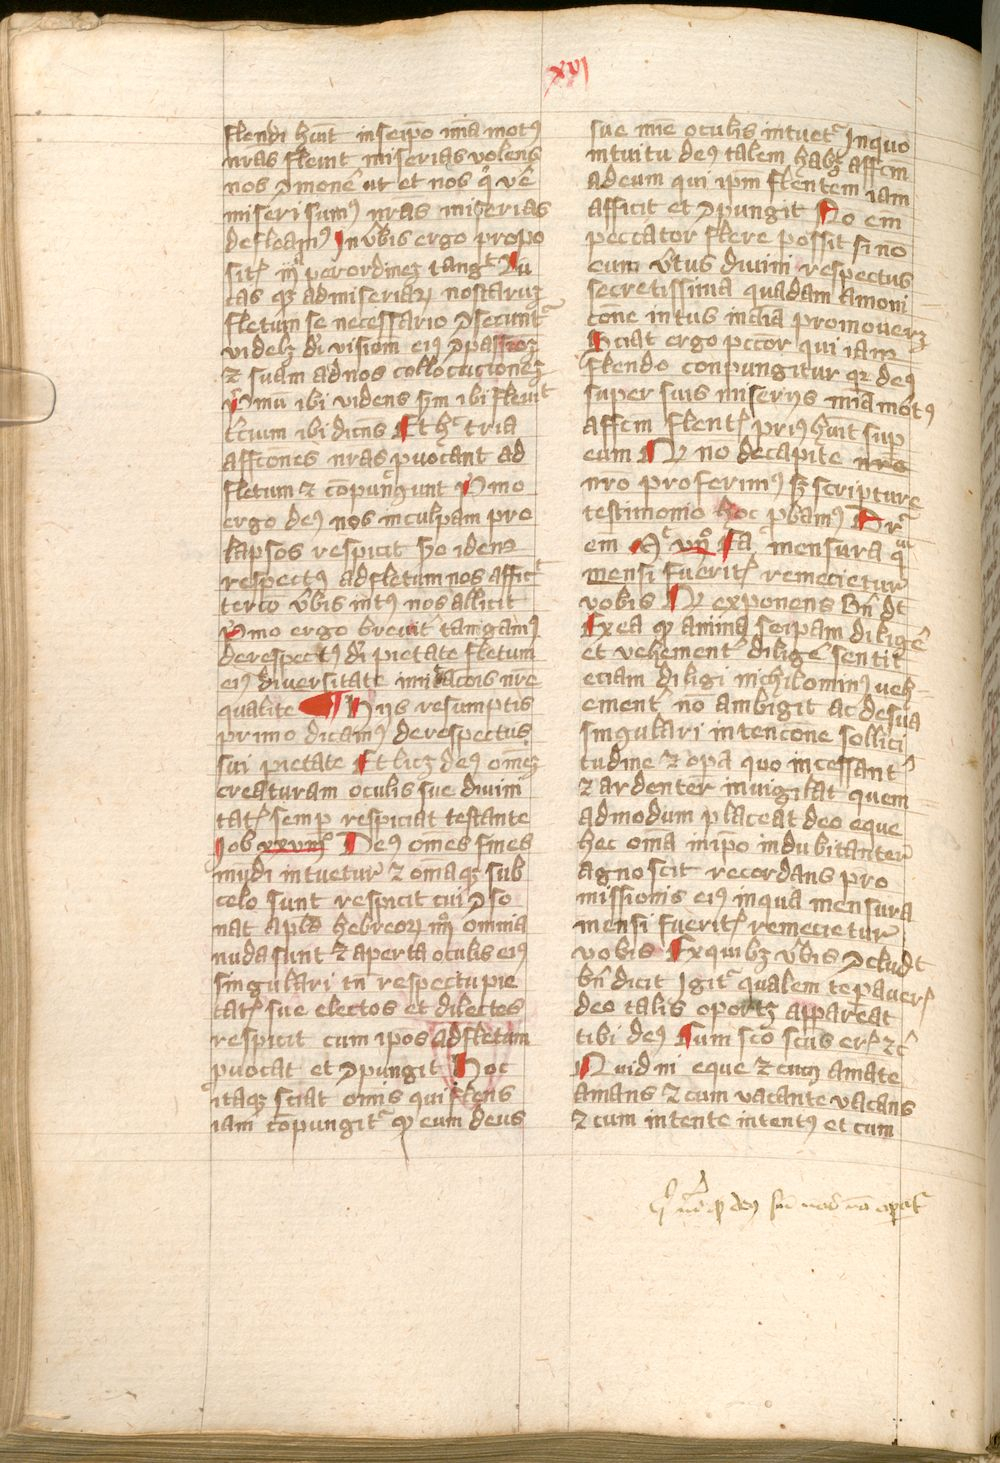 xvi
flendi hūit in seip̄o mīa motꝰ
nr̄as fleuit miserias volens
nos ꝯmonē ut et nos qͥ vē
miseri sumꝰ nr̄as miserias
defleamꝰ In v̄bis ergo propo
per ordinez tangit̄
tas qꝫ ad miseriaꝝ nostraruꝫ
fletum se necessario ꝯsecunt̄
videlꝫ di visiom eiꝰ ꝯpassioꝫ
⁊ suam ad nos collocucionez
Pͥmu ibi videns scdm ibi fleuit
t̄cium ibi dicens Et hͨ tria
affc̄ones nr̄as ꝓuocant ad
fletum ⁊ cōpungunt Pͥmo
ergo deꝰ nos in culpam pro
lapsos respicit Scdo idem
respectꝰ ad fletum nos afficit
tercō v̄bis intꝰ nos allicit
Pͥmo ergo breuit̄ tangamꝰ
de respectꝰ di pietate fletum
eiꝰ diuersitate imitac̄ois nr̄e
qualite ¶ Hijs resumptis
primo dicamꝰ de respectus
sui pietate Et licꝫ deꝰ om̄eꝫ
creaturam oculis sue diuini
tatꝭ semꝑ respiciat testante
Job xxviijͦ Deꝰ om̄es fines
mūdi intuetur ⁊ om̄aqꝫ sub
celo sunt respicit cui ꝯso
nat apl̄s hebreoꝝ iiijͦ omnia
nuda sunt ⁊ aperta oculis eiꝰ
singulari tn̄ respectu pie
tatꝭ sue electos et dilectos
respicit cum ip̄os ad fletum
ꝓuocat et ꝯpungit Hoc
itaqꝫ sciat omīs qui flens
iam cōpungitͬ qꝫ eum deus
sue mīe oculis intuetͬ In quo
intuitu deꝰ talem habꝫ affcm̄
ad eum qui ip̄m flentem iam
afficit et ꝯpungit No em̄
peccator flere possit si no
eum v̄tus diuini respectus
secretissima quadam amoni
c̄one intus in clīa promoueꝫ
Sciat ergo pcc̄or qui iam
flendo conpungitur qꝛ deꝰ
super suis miserijs mīa motꝰ
affcm̄ flentꝭ priꝰ hūit suꝑ
eum Hͦ no de capite nr̄o
nr̄o proferimꝰ sꝫ scripture
testimonio hoc ꝓbamꝰ Dr̄
em̄ Mͭ vijͦ Ea mensura qͣ
mensi fueritꝭ remecietur
vobis Hͦ exponens Bn̄ dt
Ex ea qꝫ anima seipam diligē
et vehement̄ diligē sentit
eciam diligi nichilominꝰ veh
ement̄ nō ambigit ac de sua
singulari intenc̄one sollici
tudine ⁊ oꝑa quo incessant̄
⁊ ardenter inuigilat quem
admodum placeat deo eque
hec om̄a in ip̄o indubitanter
agnoscit recordans pro
missionis eiꝰ in qua mensura
mensi fueritꝭ remecietur
vobis Ex quibꝫ v̄bis ꝯcludit
bn̄ dicit Igitͬ qualem te paueris
deo talis oportꝫ appareat
tibi deꝰ Cum scō scūs erꝭ ⁊c̄
Quid ni eque ⁊ cum amate
amans ⁊ cum vacante vacans
⁊ cum intente intentꝰ et cum